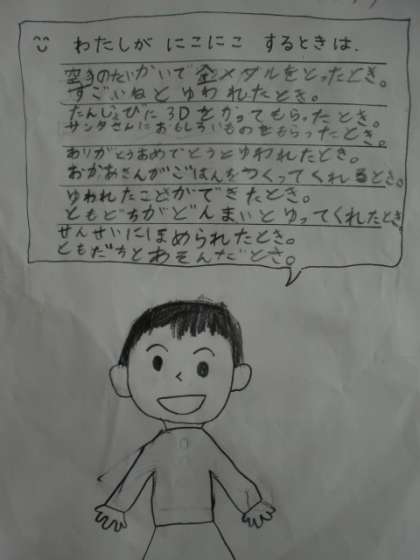 わたしが にこにこ するときは.
空手のたいかいで金メダルをとったとき。
すごいねとゆわれたとき。
たんじょうびに3Dをかってもらったとき。
サンタさんにおもしろいものをもらったとき。
ありがとうおめでとうとゆわれたとき。
おかあさんがごはんをつくってくれるとき。
ゆわれたことができたとき。
ともだちがどんまいとゆってくれたとき
せんせいにほめられたとき。
ともだちとあそんだとき。